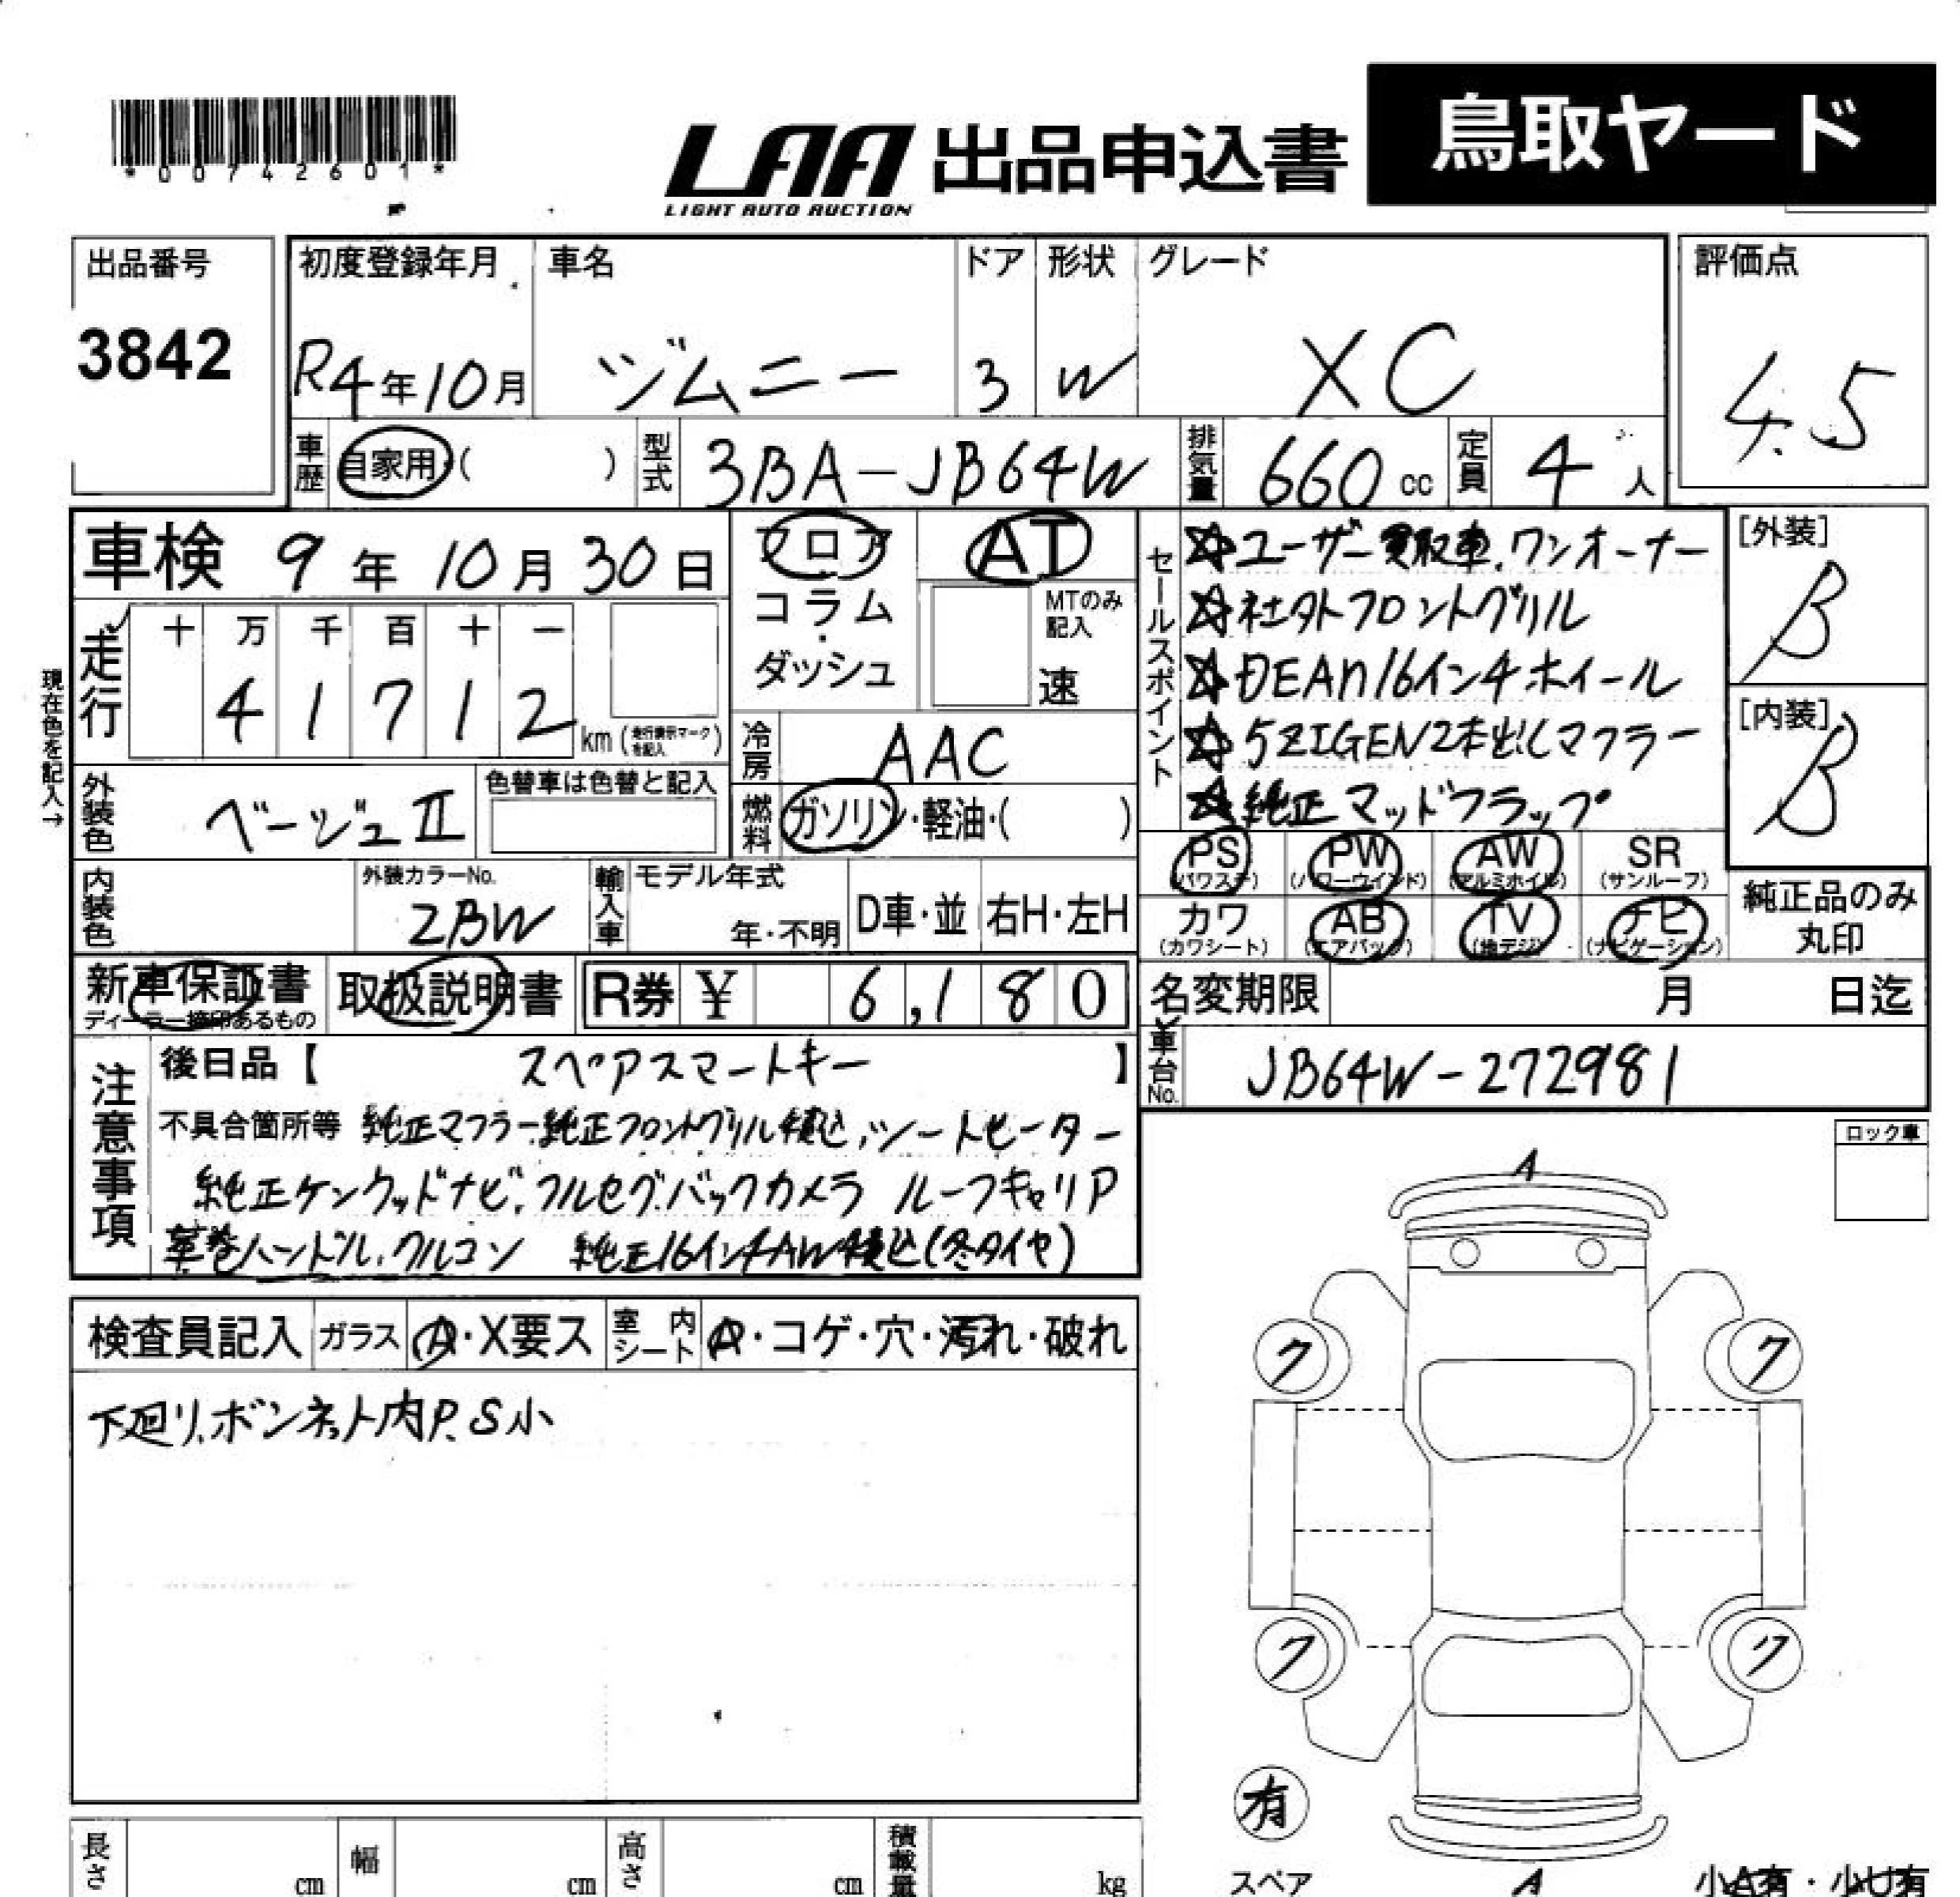 *00742601*
LAA 出品申込書 鳥取ヤード
LIGHT AUTO AUCTION
出品番号
3842
初度登録年月
R4年10月
車名
ジムニー
ドア
3
形状
W
グレード
XC
評価点
4.5
車歴 自家用・( )
型式 3BA-JB64W
排気量 660 cc
定員 4 人
車検 9年10月30日
走行 十 万 千 百 十 一
4 1 7 1 2 km(走行表示マークを記入)
現在色を記入→
フロア・コラム・ダッシュ
AT
MTのみ記入
速
冷房 AAC
燃料 ガソリン・軽油・( )
外装色 ベージュII
色替車は色替と記入
内装色
外装カラーNo.
2BW
輸入車
モデル年式
年・不明
D車・並
右H・左H
セールスポイント
☆ユーザー買取車.ワンオーナー
☆社外フロントグリル
☆DEAN16インチホイール
☆5ZIGEN2本出しマフラー
☆純正マッドフラップ
[外装]
B
[内装]
B
PS (パワステ) PW (パワーウインド) AW (アルミホイル) SR (サンルーフ)
カワ (カワシート) AB (エアバック) TV (地デジ) ナビ (ナビゲーション)
純正品のみ丸印
新車保証書
ディーラー捺印あるもの
取扱説明書
R券 ¥ 6,180
名変期限 月 日迄
車台No. JB64W-272981
注意事項
後日品【 スペアスマートキー 】
不具合箇所等 純正マフラー純正フロントグリル積込,シートヒーター
純正ケンウッドナビ.フルセグ.バックカメラ ルーフキャリア
革巻ハンドル.クルコン 純正16インチAW積込(冬タイヤ)
検査員記入 ガラス A・X要ス 室内シート A・コゲ・穴・汚れ・破れ
下廻り.ボンネット内P.S小
ロック車
A
ク ク
ク ク
有
スペア
A
小A有・小U有
長さ cm 幅 cm 高さ cm 積載量 kg